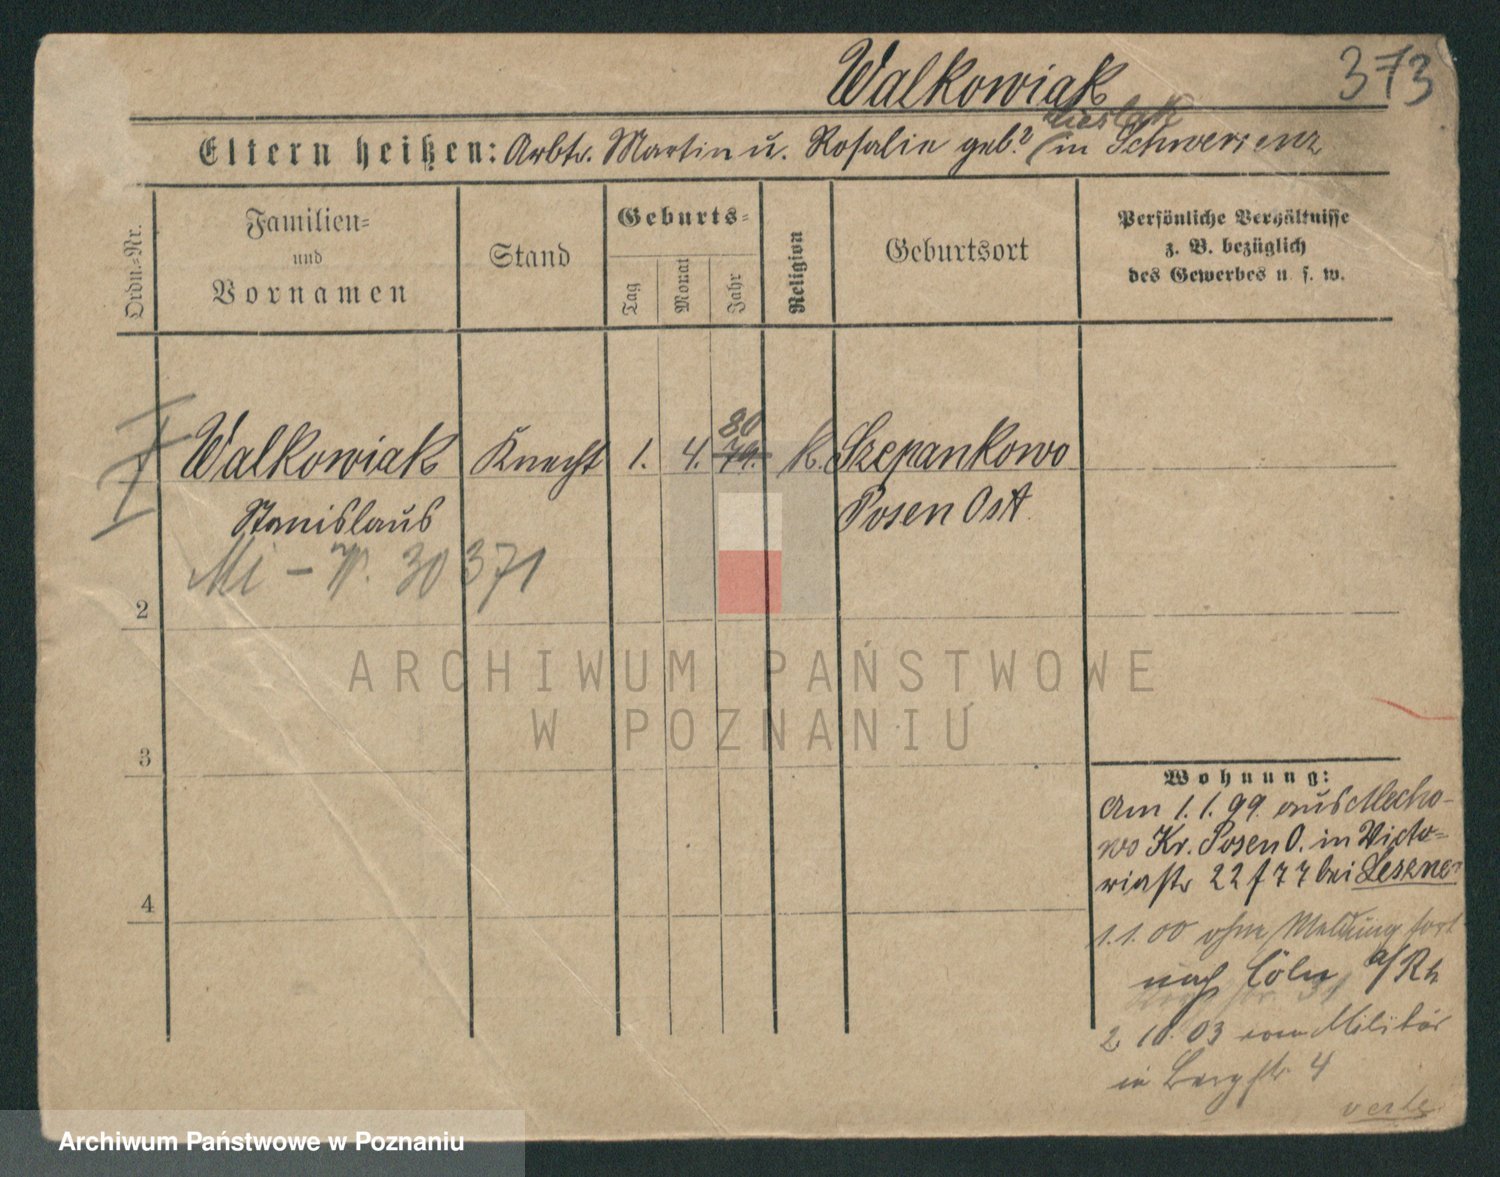 Walkowiak
373
Eltern heißen: Arbtr. Martin u. Rosalie geb. in Schwersenz
Ordn.-Nr.
Familien-
und
Vornamen
Stand
Geburts-
Tag
Monat
Jahr
Religion
Geburtsort
Persönliche Verhältnisse
z. B. bezüglich
des Gewerbes u. s. w.
80
Walkowiak Knecht 1. 4. 79. k. Szepankowo
Stanislaus Posen Ost
30371
2
3
4
ARCHIWUM PAŃSTWOWE
W POZNANIU
Wohnung:
Am 1.1.99. aus Mecho-
wo Kr. Posen O. in Victo-
riastr 22 f 77 bei Leszner
1.1.00 ohne Meldung fort
nach Cöln a/Rh
2. 10. 03 vom Militär
in Bergstr 4
verte
Archiwum Państwowe w Poznaniu